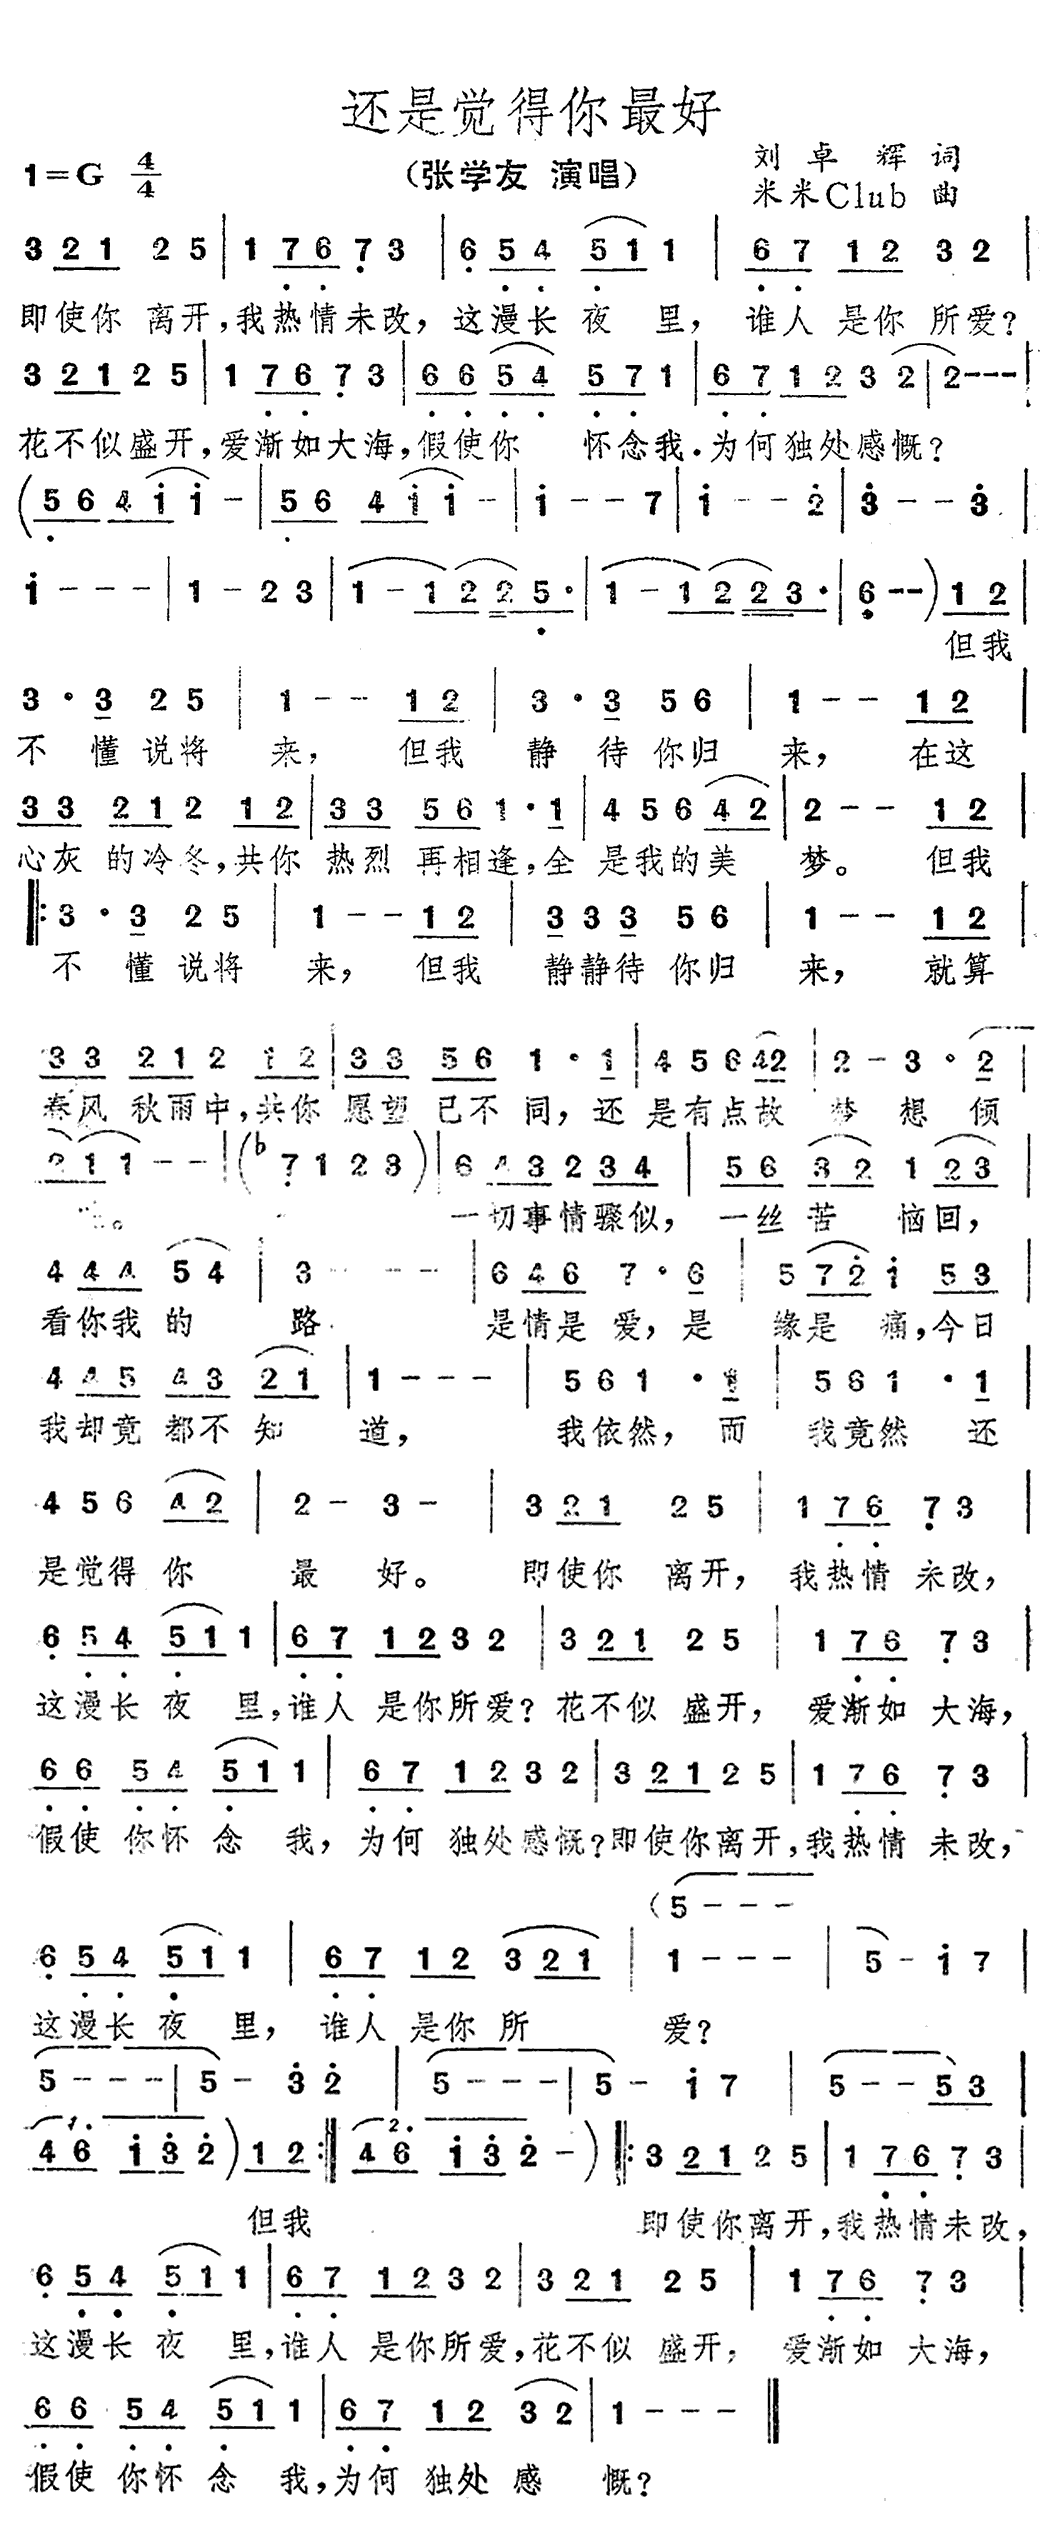 还是觉得你最好
1=G 4/4 (张学友 演唱) 刘卓辉 词
米米Club 曲
3 2 1 2 5 | 1 7 6 7 3 | 6 5 4 5 1 1 | 6 7 1 2 3 2 |
即使你 离开,我热情未改, 这漫长 夜 里, 谁人 是你 所爱?
3 2 1 2 5 | 1 7 6 7 3 | 6 6 5 4 5 7 1 | 6 7 1 2 3 2 | 2 - - - |
花不似盛开,爱渐如大海,假使你 怀念我.为何独处感慨?
( 5 6 4 i i - | 5 6 4 i i - | i - - 7 | i - - 2 | 3 - - 3 |
i - - - | 1 - 2 3 | 1 - 1 2 2 5 · | 1 - 1 2 2 3 · | 6 - - ) 1 2 |
但我
3 · 3 2 5 | 1 - - 1 2 | 3 · 3 5 6 | 1 - - 1 2 |
不 懂 说将 来, 但我 静 待 你归 来, 在这
3 3 2 1 2 1 2 | 3 3 5 6 1 · 1 | 4 5 6 4 2 | 2 - - 1 2 |
心灰 的冷冬,共你 热烈 再相逢,全 是我的美 梦。 但我
‖: 3 · 3 2 5 | 1 - - 1 2 | 3 3 3 5 6 | 1 - - 1 2 |
不 懂 说将 来, 但我 静静待 你归 来, 就算
3 3 2 1 2 1 2 | 3 3 5 6 1 · 1 | 4 5 6 4 2 | 2 - 3 · 2 |
春风 秋雨中,共你 愿望 已不 同, 还 是有点故 梦 想 倾
2 1 1 - - | ( b7 1 2 3 ) | 6 4 3 2 3 4 | 5 6 3 2 1 2 3 |
一切事情骤似, 一丝 苦 恼回,
4 4 4 5 4 | 3 - - - | 6 4 6 7 · 6 | 5 7 2 i 5 3 |
看你我 的 路 是情是 爱, 是 缘是 痛,今日
4 4 5 4 3 2 1 | 1 - - - | 5 6 1 · 1 | 5 6 1 · 1 |
我却竟 都不 知 道, 我依然, 而 我竟然 还
4 5 6 4 2 | 2 - 3 - | 3 2 1 2 5 | 1 7 6 7 3 |
是觉得 你 最 好。 即使你 离开, 我热情 未改,
6 5 4 5 1 1 | 6 7 1 2 3 2 | 3 2 1 2 5 | 1 7 6 7 3 |
这漫长 夜 里,谁人 是你所爱? 花不似 盛开, 爱渐如 大海,
6 6 5 4 5 1 1 | 6 7 1 2 3 2 | 3 2 1 2 5 | 1 7 6 7 3 |
假使 你怀 念 我, 为何 独处感慨?即使你离开,我热情 未改,
( 5 - - -
6 5 4 5 1 1 | 6 7 1 2 3 2 1 | 1 - - - | 5 - i 7 |
这漫长 夜 里, 谁人 是你 所 爱?
5 - - - | 5 - 3 2 | 5 - - - | 5 - i 7 | 5 - - 5 3 |
1. 2.
4 6 i 3 2 ) 1 2 :‖ 4 6 i 3 2 - ) ‖: 3 2 1 2 5 | 1 7 6 7 3 |
但我 即使你离开,我热情未改,
6 5 4 5 1 1 | 6 7 1 2 3 2 | 3 2 1 2 5 | 1 7 6 7 3 |
这漫长 夜 里,谁人 是你所爱,花不似 盛开, 爱渐如 大海,
6 6 5 4 5 1 1 | 6 7 1 2 3 2 | 1 - - - ‖
假使 你怀 念 我,为何 独处 感 慨?